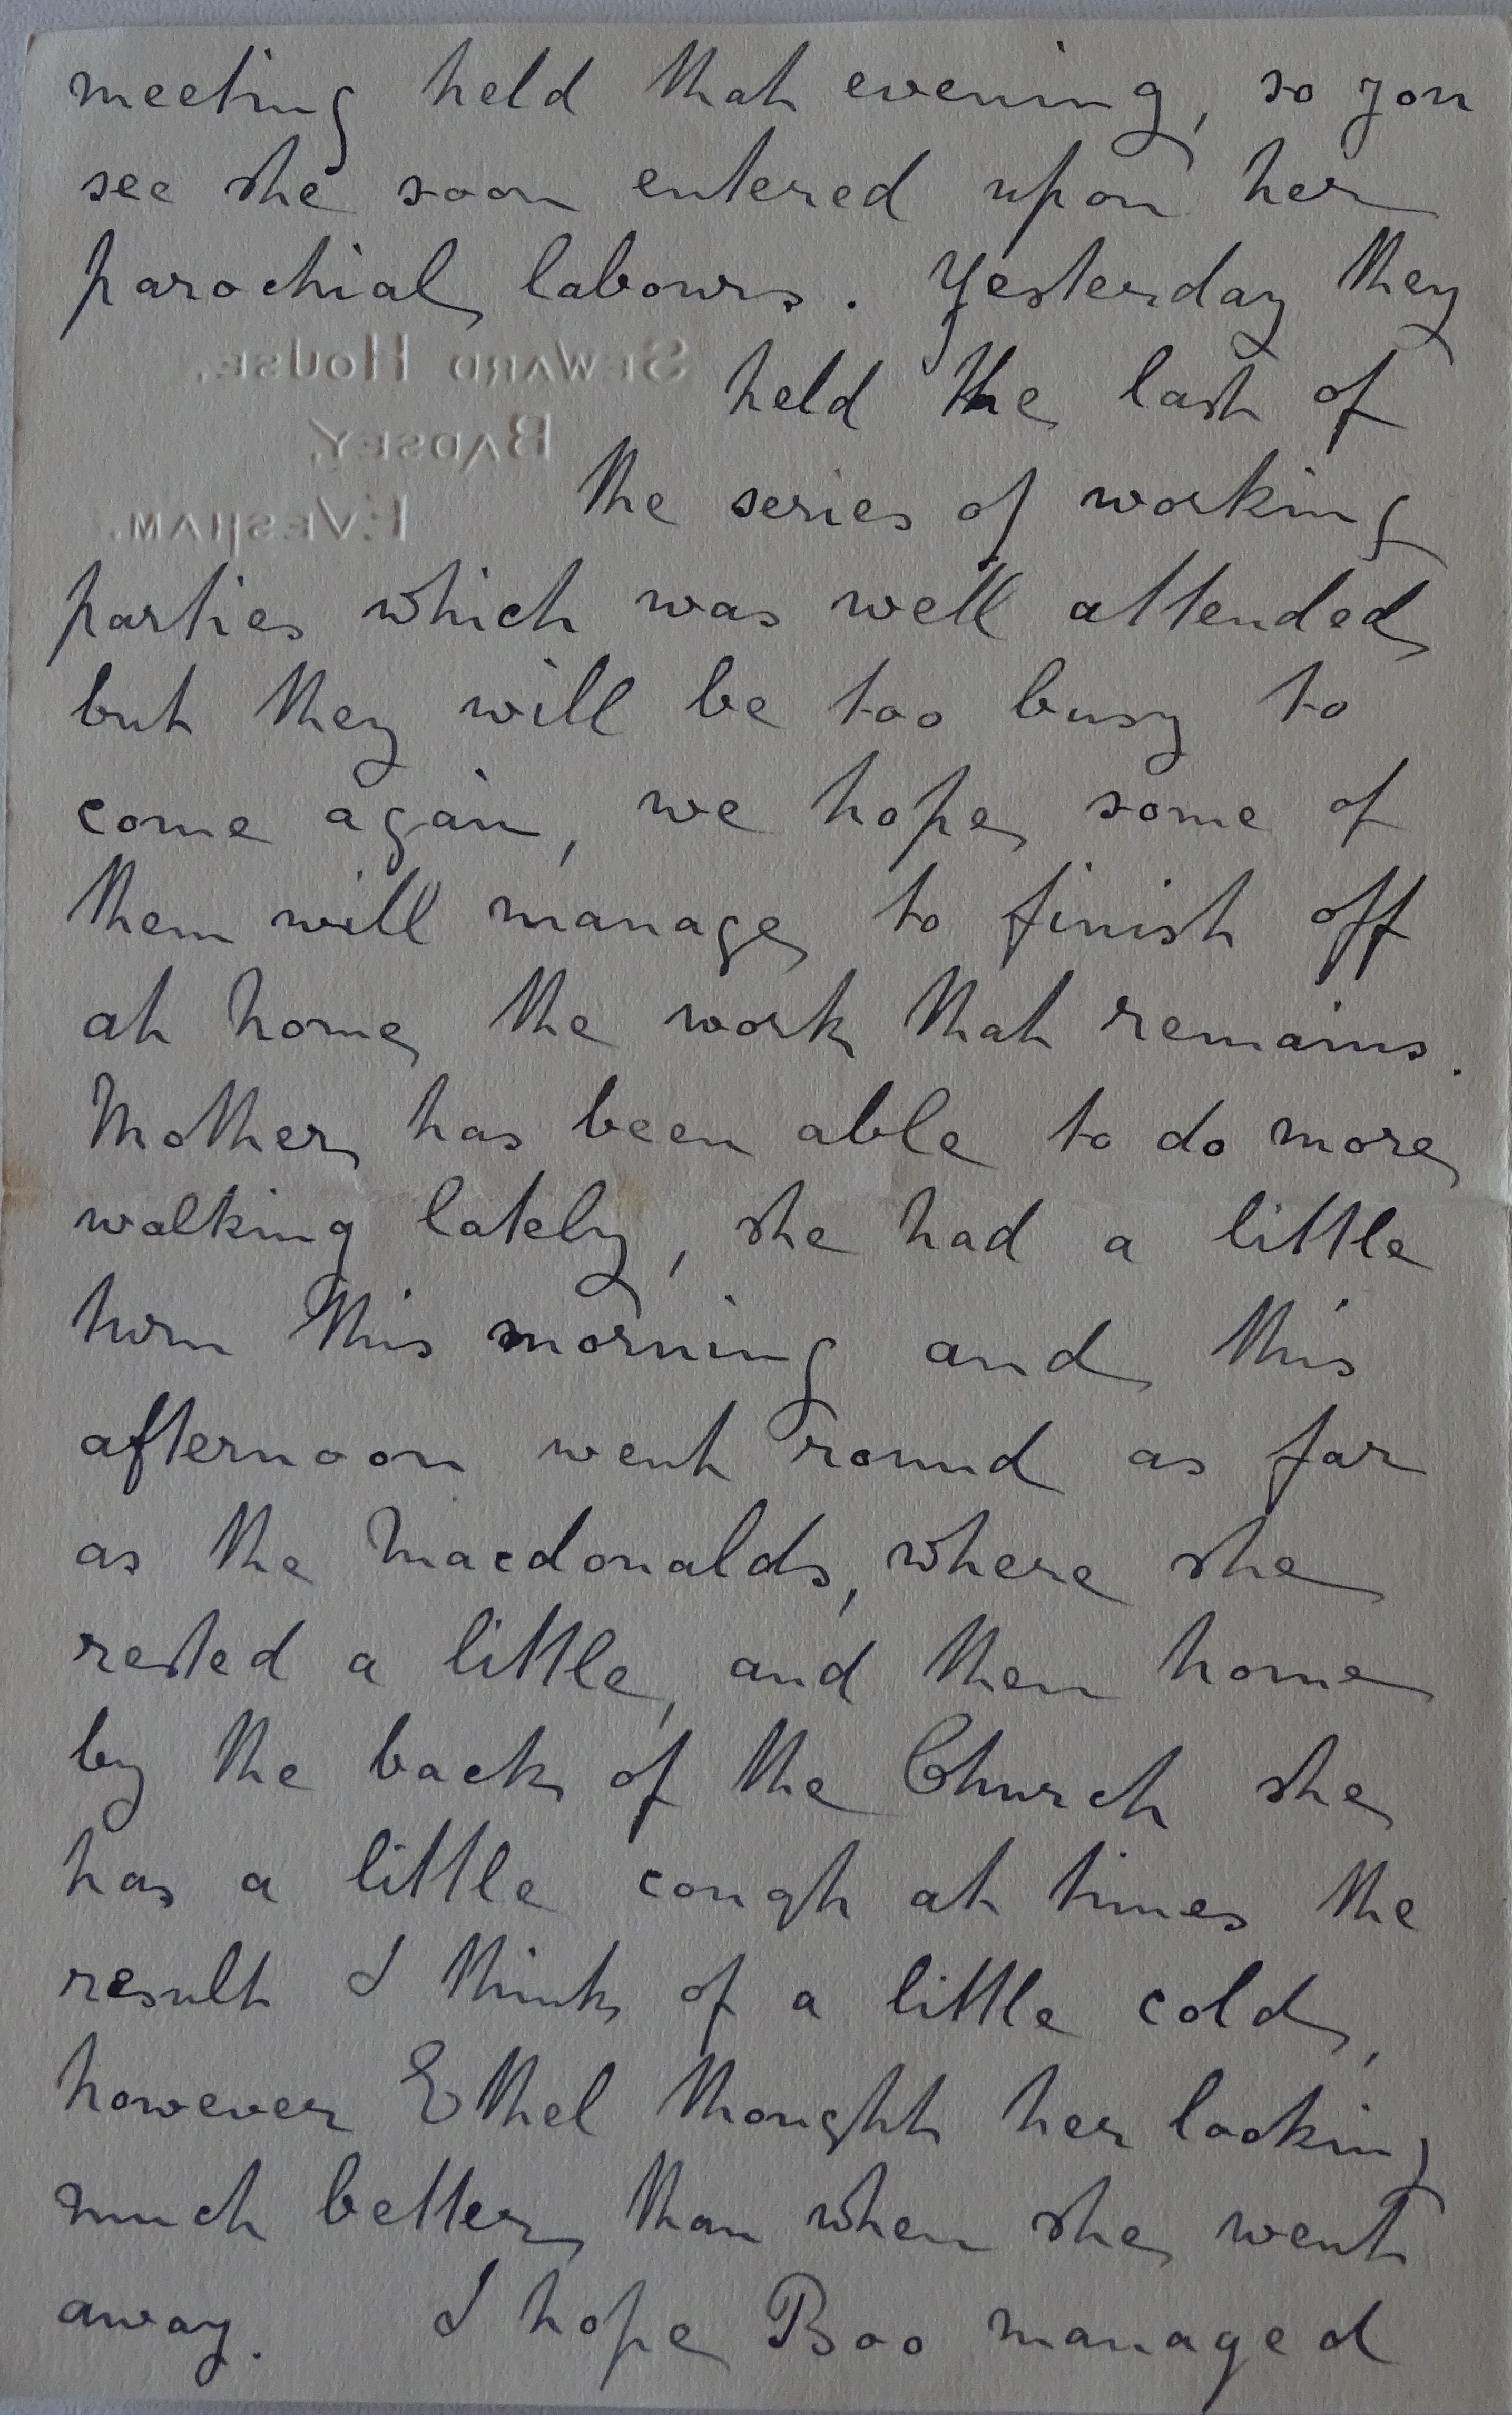 meeting held that evening, so you
see she soon entered upon her
parochial labours. Yesterday they
SEWARD HOUSE,
held the last of
BADSEY,
the series of working
EVESHAM.
parties which was well attended
but they will be too busy to
come again, we hope some of
them will manage to finish off
at home the work that remains.
Mother has been able to do more
walking lately, she had a little
turn this morning and this
afternoon went round as far
as the Macdonalds, where she
rested a little, and then home
by the back of the Church she
has a little cough at times the
result I think of a little cold,
however Ethel thought her looking
much better than when she went
away. I hope Boo managed